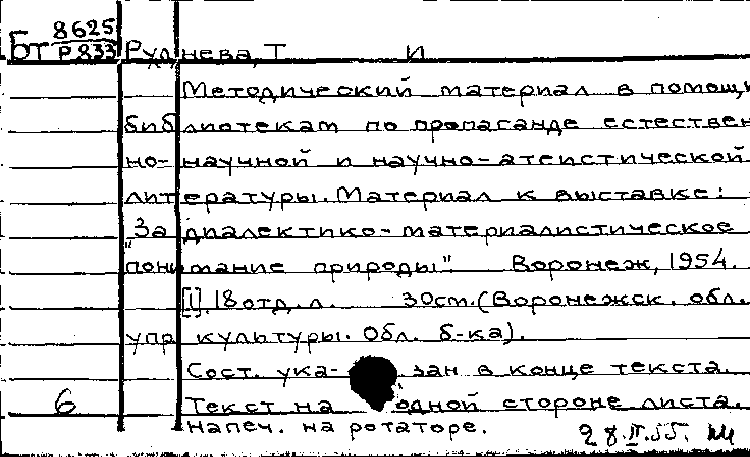 Бт 8625
Р833 Руднева, Т И
Методический материал в помощь
библиотекам по пропаганде естествен
но-научной и научно-атеистической
литературы. Материал к выставке:
"За диалектико-материалистическое
понимание природы". Воронеж, 1954.
[1], 18 отд. л. 30см. (Воронежск. обл.
упр культуры. Обл. б-ка).
Сост. ука- зан в конце текста.
6 Текст на одной стороне листа.
Напеч. на ротаторе. 28.II.55.